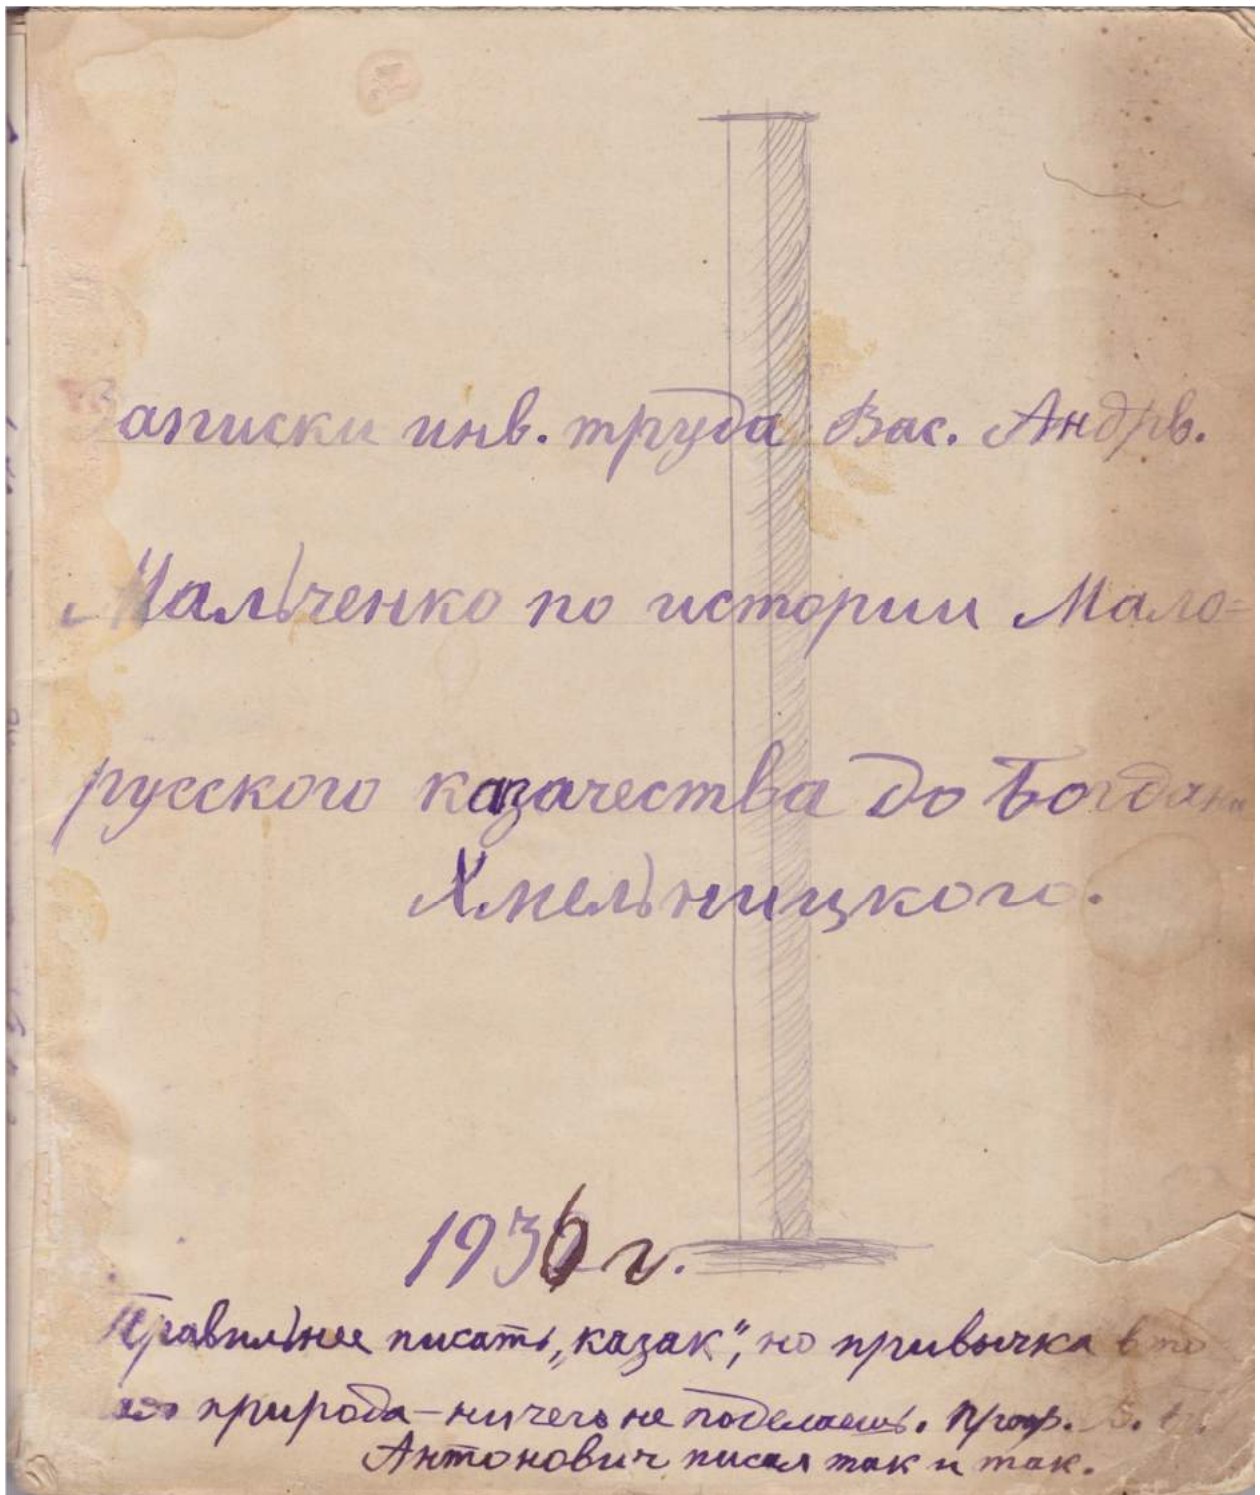 Записки инв. труда Вас. Андрв.
Мальченко по истории Мало=
русского казачества до Богдана
Хмельницкого.
1936 г.
Правильнее писать „казак“, но привычка
природа – ничего не поделаешь. Проф.
Антонович писал так и так.